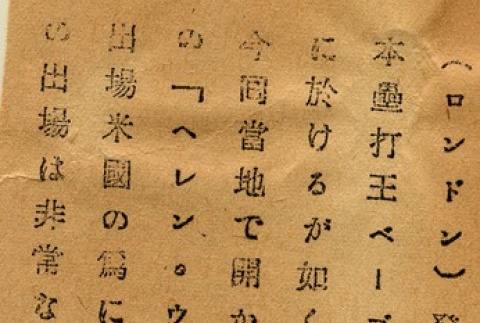 (ロンドン)発
本壘打王ベー
に於けるが如く
今回當地で開か
の「ヘレン。ウ
出場米國の爲に
の出場は非常な